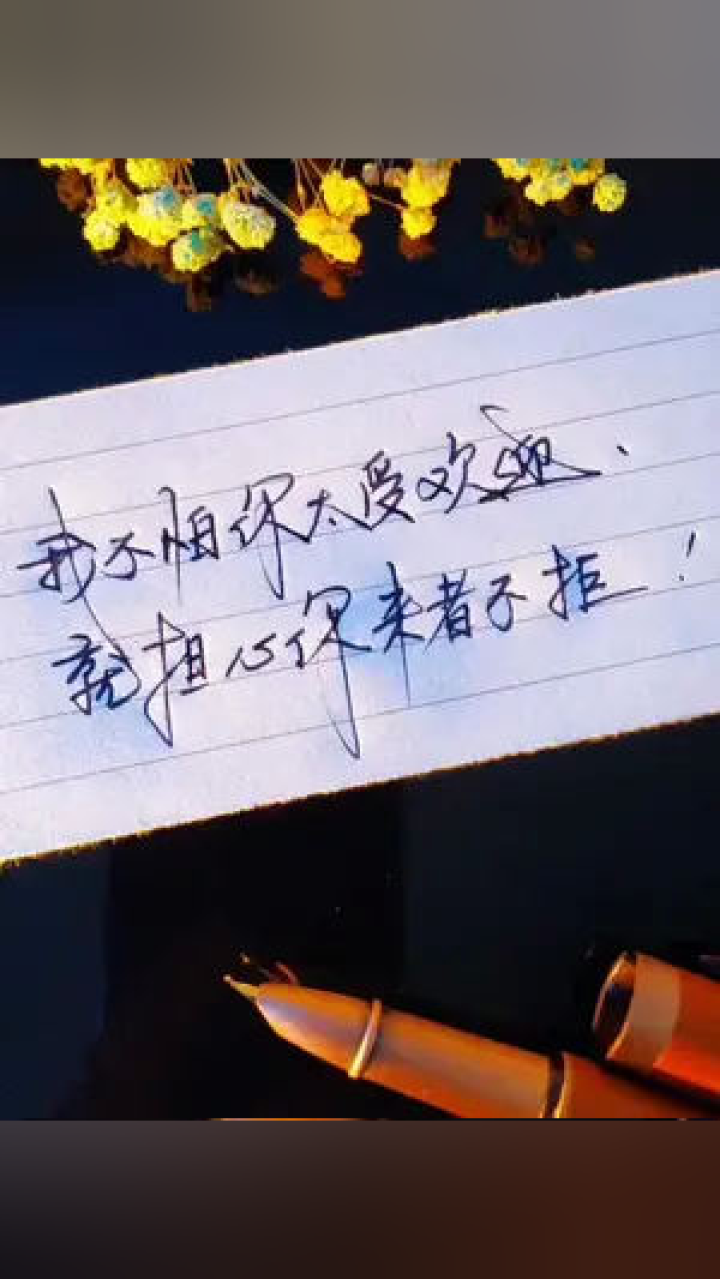 我不怕你太受欢迎、
就担心你来者不拒！